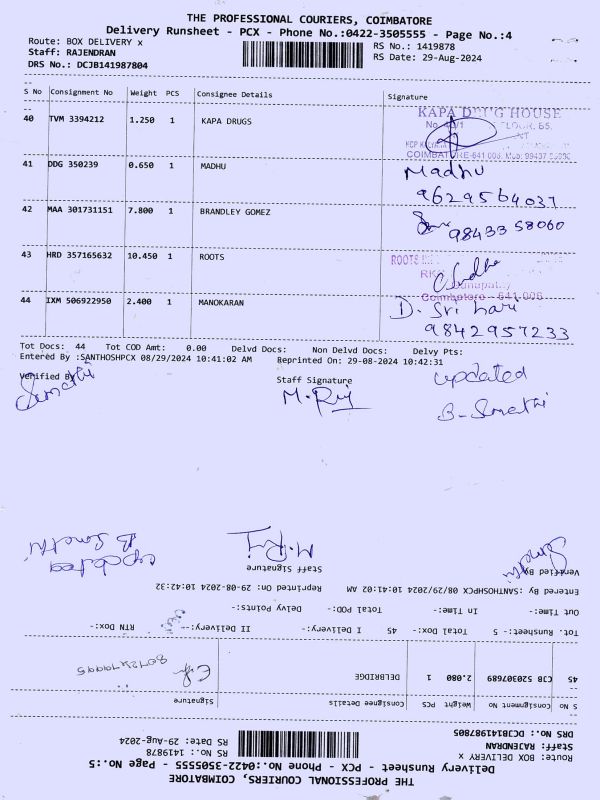 THE PROFESSIONAL COURIERS, COIMBATORE
Delivery Runsheet - PCX - Phone No.:0422-3505555 - Page No.:4
Route: BOX DELIVERY x
RS No.: 1419878
Staff: RAJENDRAN
RS Date: 29-Aug-2024
DRS No.: DCJB141987804
S No Consignment No Weight PCS Consignee Details Signature
40 TVM 3394212 1.250 1 KAPA DRUGS
KAPA DRUG HOUSE
41 DDG 350239 0.650 1 MADHU
Madhu
9629564037
42 MAA 301731151 7.800 1 BRANDLEY GOMEZ
98433 58060
43 HRD 357165632 10.450 1 ROOTS
ROOTS
Coimbatore - 641 006
44 IXM 506922950 2.400 1 MANOKARAN
D. Sri hari
9842957233
Tot Docs: 44 Tot COD Amt: 0.00 Delvd Docs: Non Delvd Docs: Delvy Pts:
Entered By :SANTHOSHPCX 08/29/2024 10:41:02 AM Reprinted On: 29-08-2024 10:42:31
Verified By
Staff Signature
updated
THE PROFESSIONAL COURIERS, COIMBATORE
Delivery Runsheet - PCX - Phone No.:0422-3505555 - Page No.:5
Route: BOX DELIVERY x
RS No.: 1419878
Staff: RAJENDRAN
RS Date: 29-Aug-2024
DRS No.: DCJB141987805
S No Consignment No Weight PCS Consignee Details Signature
45 CJB 520307689 2.080 1 DELBRIDGE
Tot. Runsheet:- 5 Total Dox:- 45 I Delivery:- II Delivery:- RTN Dox:-
Out Time:- In Time:- Total POD:- Delvy Points:-
Entered By :SANTHOSHPCX 08/29/2024 10:41:02 AM Reprinted On: 29-08-2024 10:42:32
Verified By
Staff Signature
updated